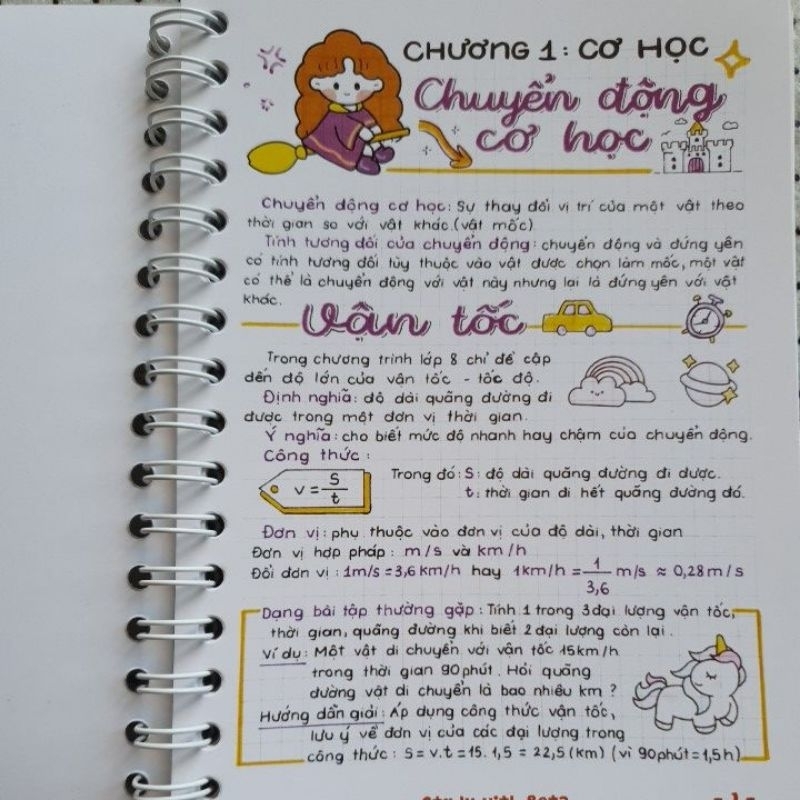 CHƯƠNG 1: CƠ HỌC
Chuyển động
cơ học
Chuyển động cơ học: Sự thay đổi vị trí của một vật theo
thời gian so với vật khác.(vật mốc)
Tính tương đối của chuyển động: chuyển động và đứng yên
có tính tương đối tùy thuộc vào vật được chọn làm mốc, một vật
có thể là chuyển động với vật này nhưng lại là đứng yên với vật
khác.
Vận tốc
Trong chương trình lớp 8 chỉ đề cập
đến độ lớn của vận tốc - tốc độ.
Định nghĩa: độ dài quãng đường đi
được trong một đơn vị thời gian.
Ý nghĩa: cho biết mức độ nhanh hay chậm của chuyển động.
Công thức:
v = S/t
Trong đó: S: độ dài quãng đường đi được.
t: thời gian đi hết quãng đường đó.
Đơn vị: phụ thuộc vào đơn vị của độ dài, thời gian
Đơn vị hợp pháp: m/s và km/h
Đổi đơn vị: 1m/s = 3,6 km/h hay 1km/h = 1/3,6 m/s ≈ 0,28m/s
Dạng bài tập thường gặp: Tính 1 trong 3 đại lượng vận tốc,
thời gian, quãng đường khi biết 2 đại lượng còn lại.
Ví dụ: Một vật di chuyển với vận tốc 15km/h
trong thời gian 90phút. Hỏi quãng
đường vật di chuyển là bao nhiêu km?
Hướng dẫn giải: Áp dụng công thức vận tốc,
lưu ý về đơn vị của các đại lượng trong
công thức: S = v.t = 15. 1,5 = 22,5 (km) (vì 90phút = 1,5h)
- 1 -